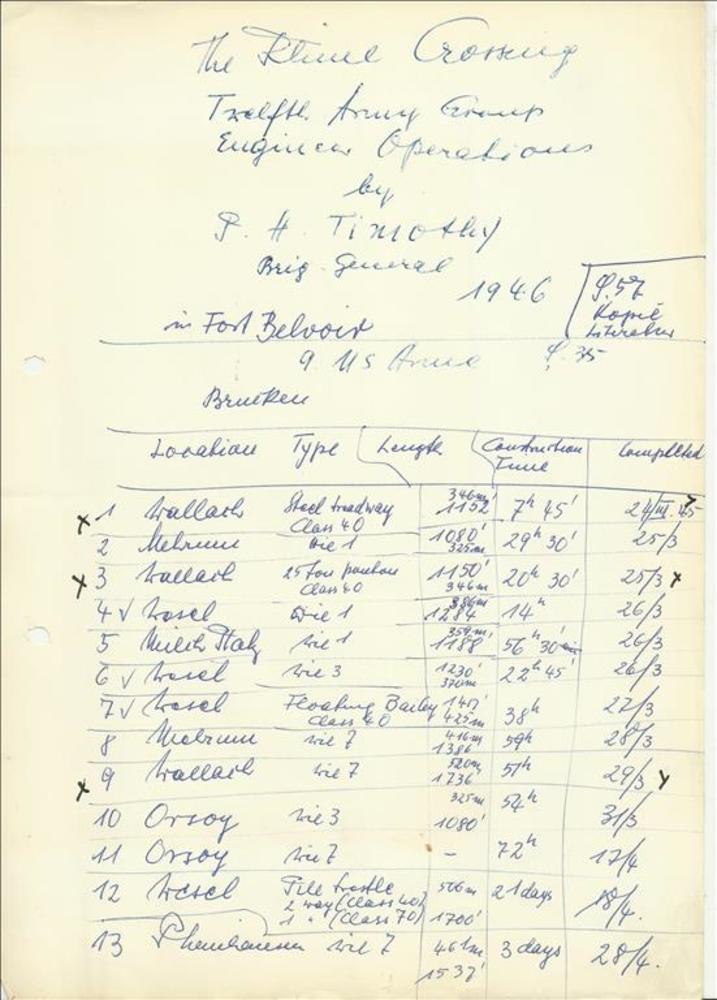 The Rhine Crossing
Twelfth Army Group
Engineer Operations
by
P. H. Timothy
Brig. General
1946
S. 57
Kopie
Literatur
in Fort Belvoir
9. US Armee S. 35
Brücken
Location Type Length Construction Time Completed
x 1 Wallach Steel treadway Class 40 346m 1152' 7h 45' 24/III.45
2 Mehrum wie 1 1080' 325m 29h 30' 25/3
x 3 Wallach 25 ton ponton Class 40 1150' 346m 20h 30' 25/3 x
4 √ Wesel wie 1 386m 1284' 14h 26/3
5 wie 1 1188' 56h 30' 26/3
6 √ Wesel wie 3 1230' 370m 22h 45' 26/3
7 √ Wesel Floating Bailey Class 40 425m 38h 27/3
8 Mehrum wie 7 416m 1386' 59h 28/3
x 9 Wallach wie 7 520m 1736' 51h 29/3 x
10 Orsoy wie 3 325m 1080' 54h 31/3
11 Orsoy wie 7 - 72h 17/4
12 Wesel Pile trestle 2 way (Class 40) 1 " (Class 70) 506m 1700' 21 days 18/4.
13 wie 7 461m 1537' 3 days 28/4.